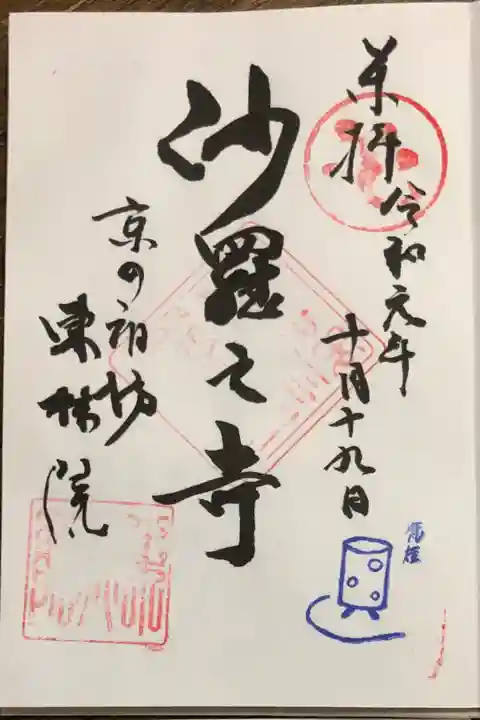 奉拝 令和元年
十月十九日
沙羅之寺
京の宿坊
東林院